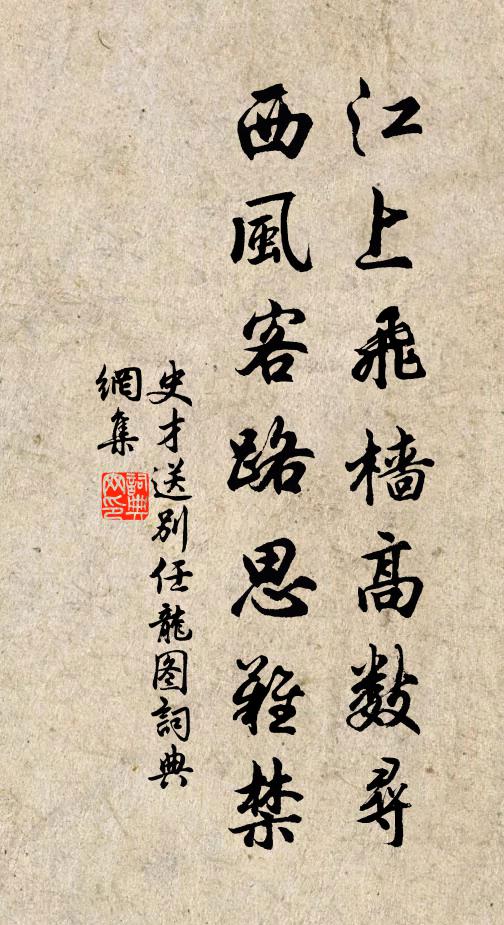 江上飛檣高數尋
西風客路思難禁
史才送別任龍图詞典
網集
詞典
网印